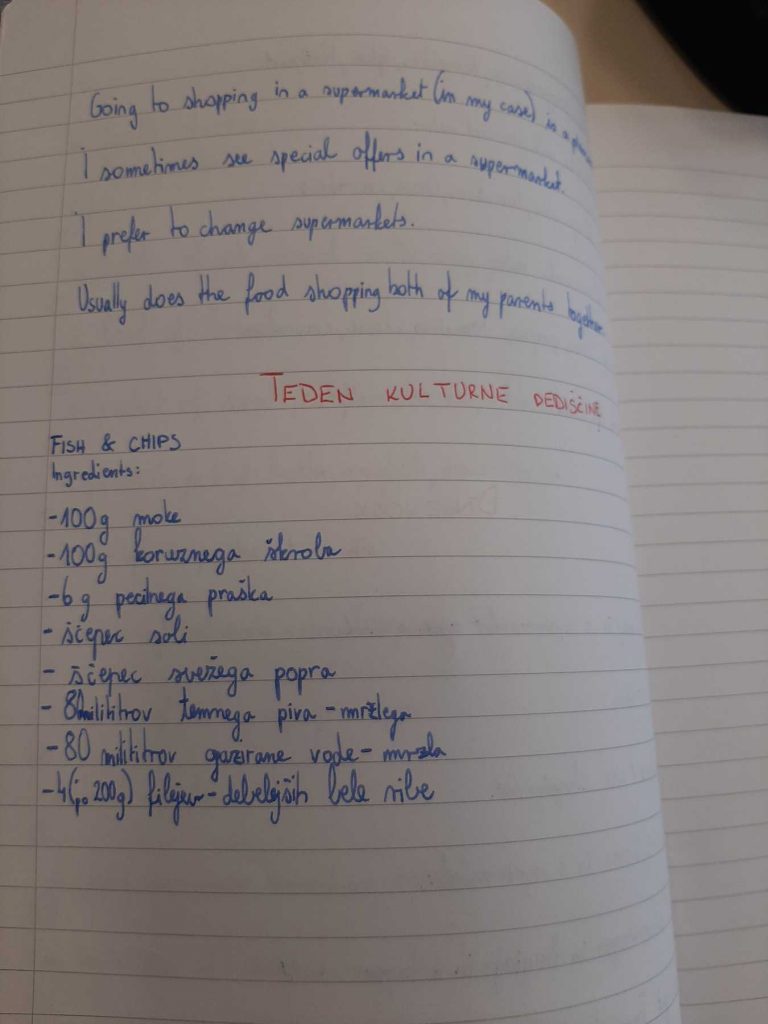 Going to shopping in a supermarket (in my case) is a
I sometimes see special offers in a supermarket.
I prefer to change supermarkets.
Usually does the food shopping both of my parents together
TEDEN KULTURNE DEDIŠČINE
FISH & CHIPS
Ingredients:
-100g moke
-100g koruznega škroba
-6 g pecilnega praška
- ščepec soli
- ščepec svežega popra
- 80 mililitrov temnega piva - mrzlega
-80 mililitrov gazirane vode - mrzla
-4 (po 200g) filejev - debelejših bele ribe